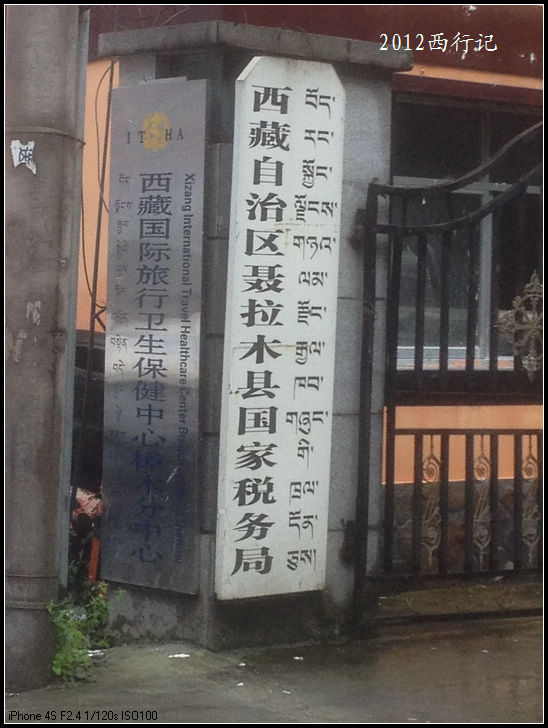 2012西行记
ITHA
西藏国际旅行卫生保健中心樟木分中心
Xizang International Travel Healthcare Center
བོད་རང་སྐྱོང་ལྗོངས་གཉའ་ལམ་རྫོང་རྒྱལ་ཁབ་གཞུང་གི་ཁྲལ་དོན་ཅུས།
西藏自治区聂拉木县国家税务局
iPhone 4S F2.4 1/120s ISO100